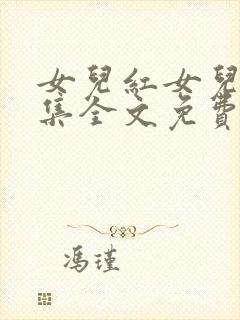 女兒紅女兒
集全文免費
馮瑾